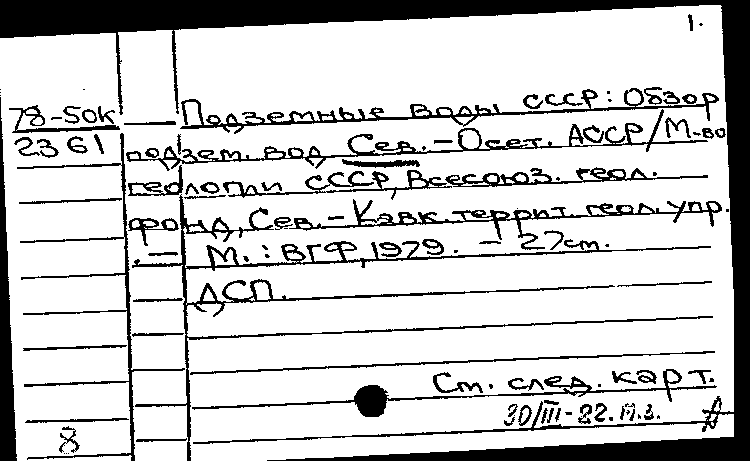 1.
78-50к Подземные воды СССР: Обзор
2361 подзем. вод Сев.-Осет. АССР/М-во
геологии СССР, Всесоюз. геол.
фонд, Сев.-Кавк. террит. геол. упр.
.— М.: ВГФ, 1979. — 27см.
ДСП.
См. след. карт.
30/III-82.
8